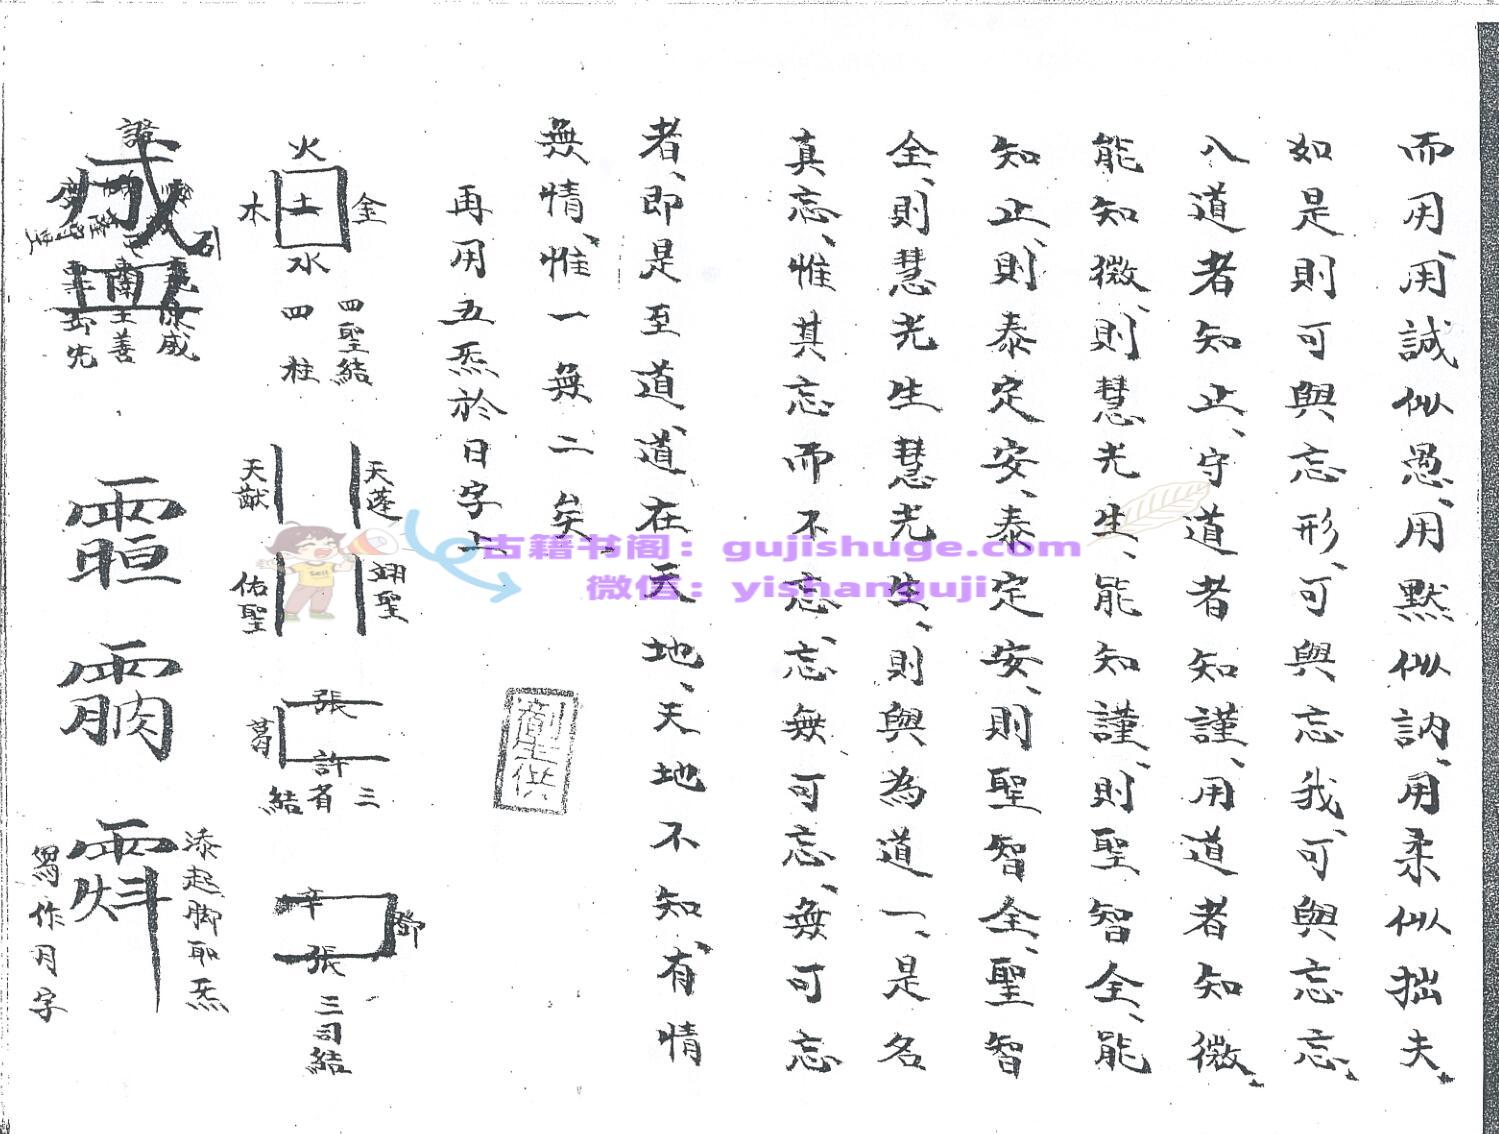 而用、用誠似愚、用默似訥、用柔似拙、夫
如是則可與忘形、可與忘我、可與忘忘、
入道者知止、守道者知謹、用道者知微、
能知微、則慧光生、能知謹、則聖智全、能
知止、則泰定安、泰定安、則聖智全、聖智
全、則慧光生慧光生、則與為道一、是名
真忘、惟其忘而不忘、忘無可忘、無可忘
者、即是至道、道在天地、天地不知、有情
無情、惟一無二矣、
再用五炁於日字上
火
金 土 木
水
四聖結
四柱
天蓬
天猷
翊聖
佑聖
張
葛
許
三省結
鄧
辛
張
三司結
王善
添起脚取炁
寫作月字
古籍书阁：gujishuge.com
微信：yishanguji